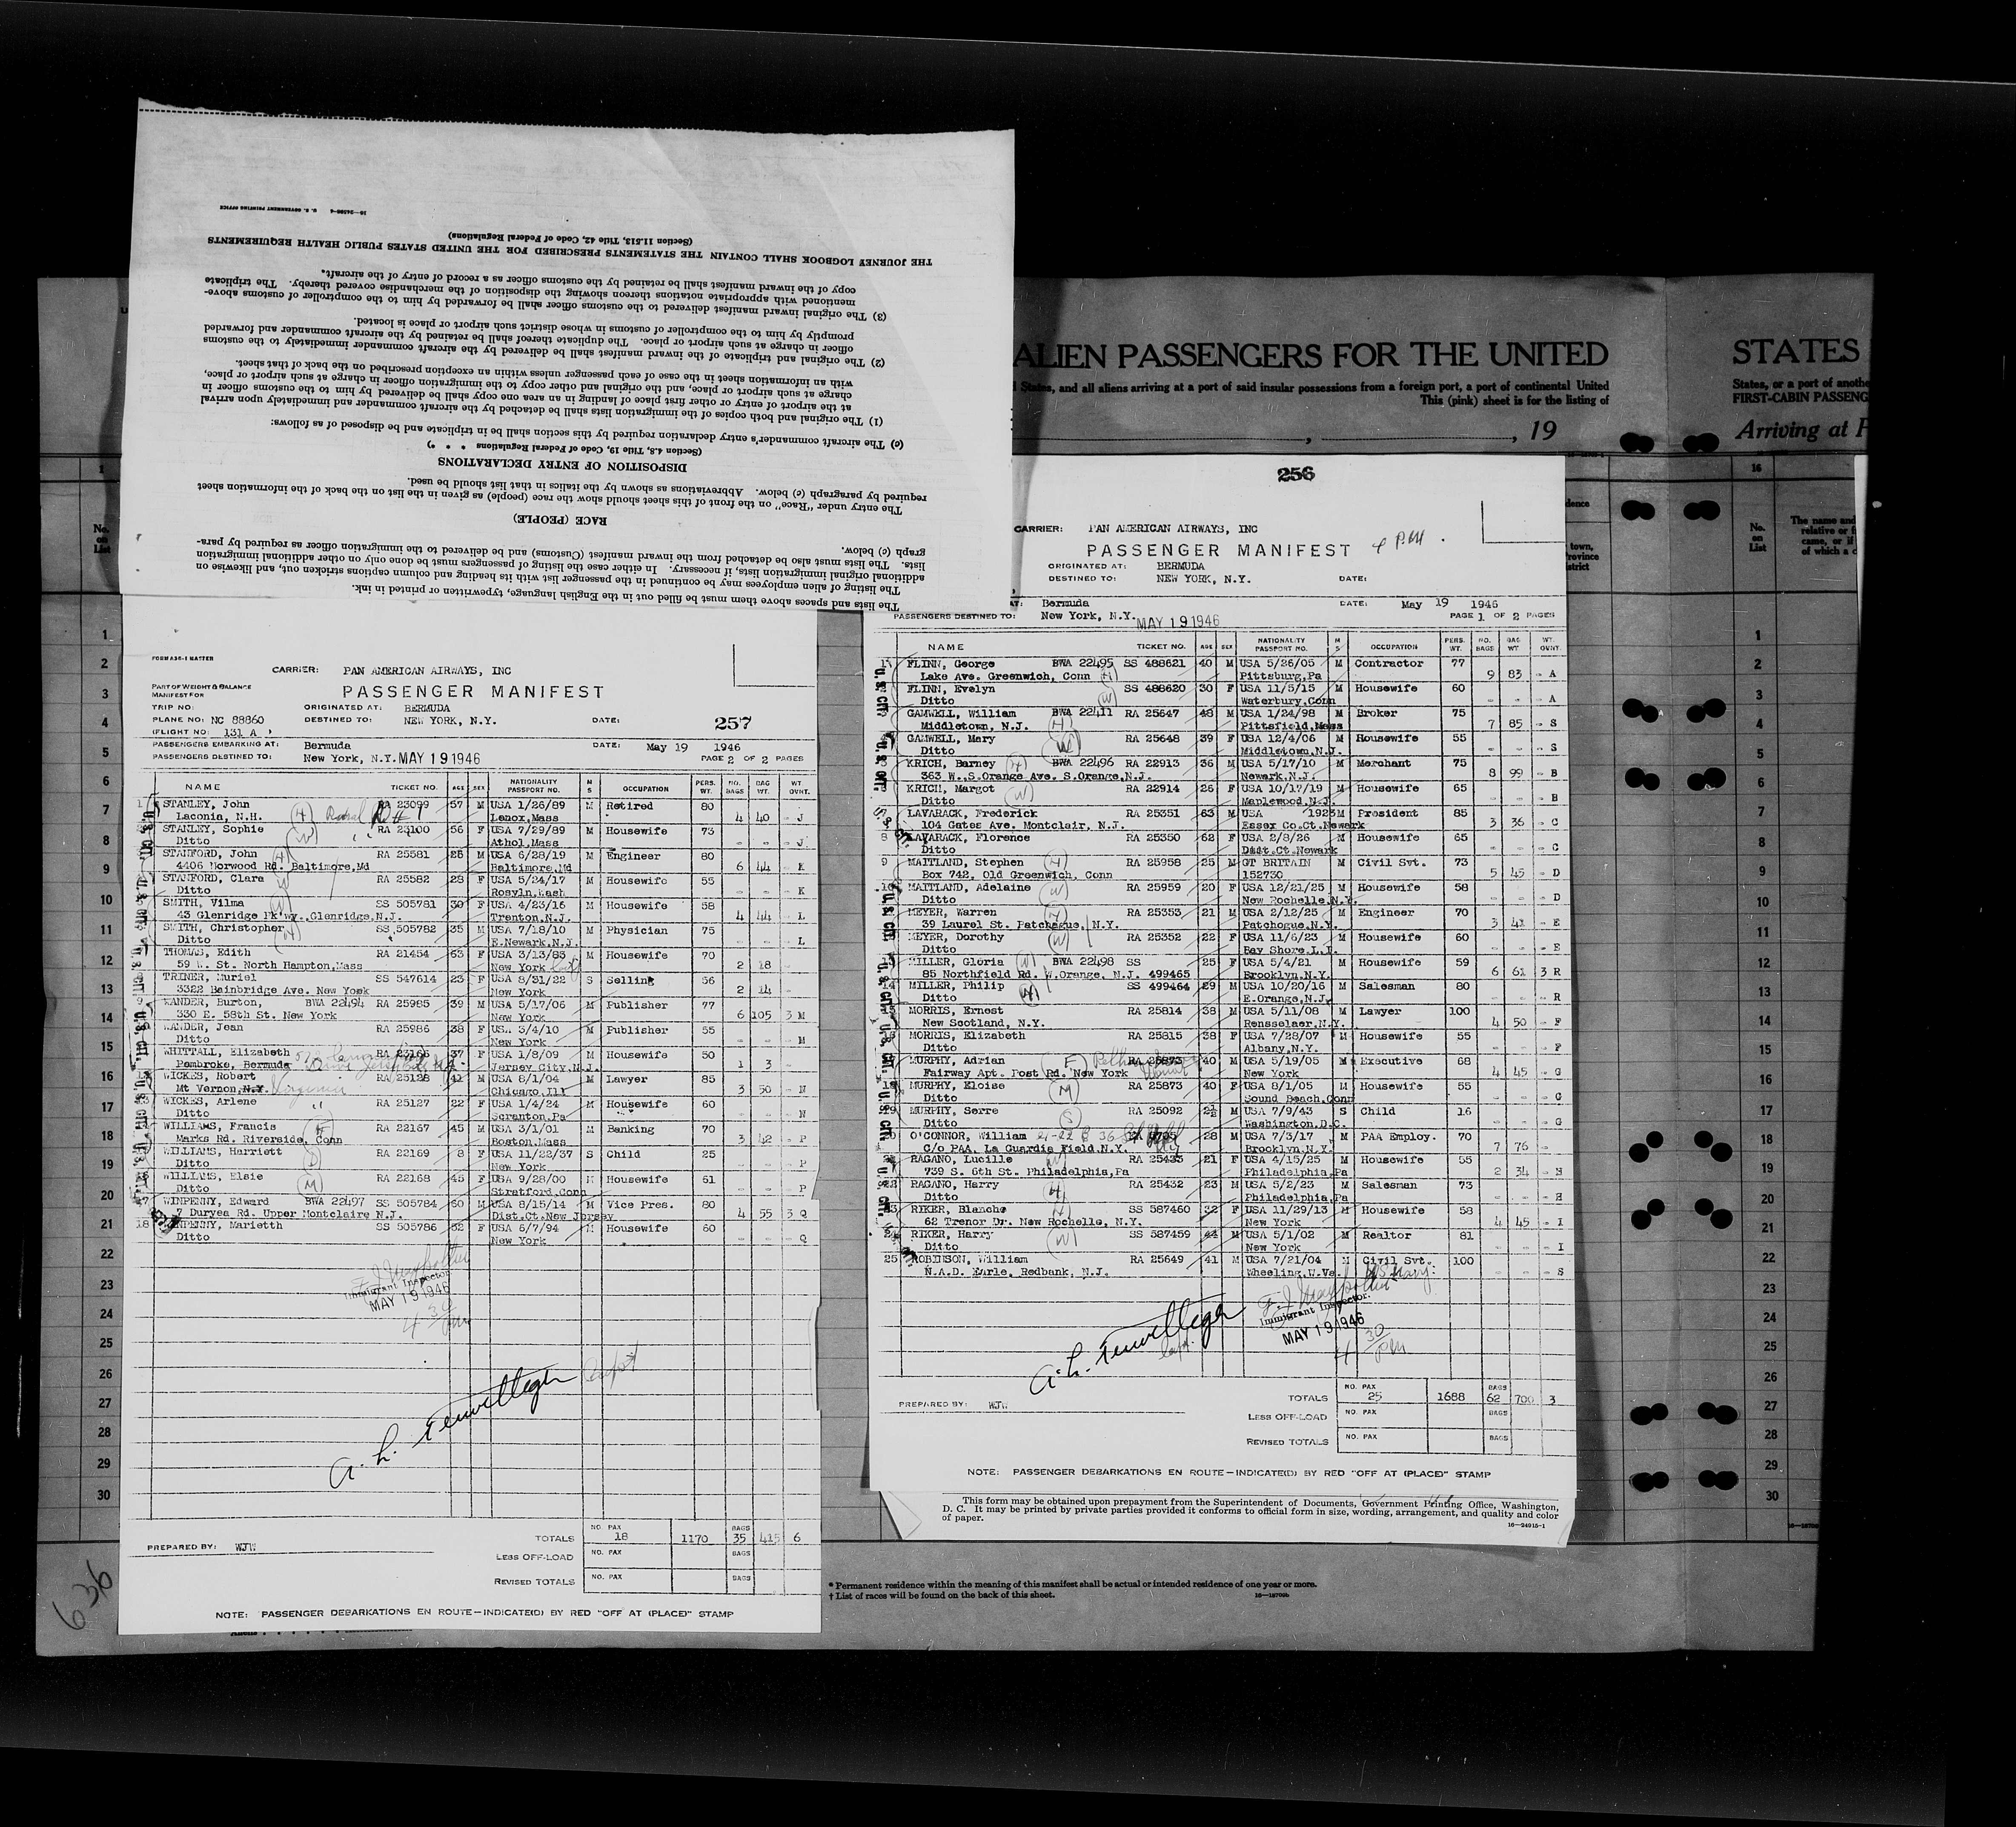 The lists and spaces above them must be filled out in the English language, typewritten or printed in ink.
The listing of alien employees may be continued in the passenger list with its heading and column captions stricken out, and likewise on
additional original immigration lists, if necessary. In either case the listing of passengers must be done only on other additional immigration
lists. The lists must also be detached from the inward manifest (Customs) and be delivered to the immigration officer as required by para-
graph (c) below.
RACE (PEOPLE)
The entry under "Race" on the front of this sheet should show the race (people) as given in the list on the back of the information sheet
required by paragraph (c) below. Abbreviations as shown by the italics in that list should be used.
DISPOSITION OF ENTRY DECLARATIONS
(Section 4.8, Title 19, Code of Federal Regulations * * *)
(c) The aircraft commander's entry declaration required by this section shall be in triplicate and be disposed of as follows:
(1) The original and both copies of the immigration lists shall be detached by the aircraft commander and immediately upon arrival
at the airport of entry or other first place of landing in an area one copy shall be delivered by him to the customs officer in
charge at such airport or place, and the original and other copy to the immigration officer in charge at such airport or place,
with an information sheet in the case of each passenger unless within an exception prescribed on the back of that sheet.
(2) The original and triplicate of the inward manifest shall be delivered by the aircraft commander immediately to the customs
officer in charge at such airport or place. The duplicate thereof shall be retained by the aircraft commander and forwarded
promptly by him to the comptroller of customs in whose district such airport or place is located.
(3) The original inward manifest delivered to the customs officer shall be forwarded by him to the comptroller of customs above-
mentioned with appropriate notations thereon showing the disposition of the merchandise covered thereby. The triplicate
copy of the inward manifest shall be retained by the customs officer as a record of entry of the aircraft.
THE JOURNEY LOGBOOK SHALL CONTAIN THE STATEMENTS PRESCRIBED FOR THE UNITED STATES PUBLIC HEALTH REQUIREMENTS
(Section 11.513, Title 42, Code of Federal Regulations)
16—24306-4 U. S. GOVERNMENT PRINTING OFFICE
ALIEN PASSENGERS FOR THE UNITED
States, and all aliens arriving at a port of said insular possessions from a foreign port, a port of continental United
This (pink) sheet is for the listing of
, 19
STATES
States, or a port of anothe
FIRST-CABIN PASSENG
Arriving at
FORM 436-1 MATTER
CARRIER: PAN AMERICAN AIRWAYS, INC
PART OF WEIGHT & BALANCE
MANIFEST FOR
PASSENGER MANIFEST
TRIP NO: ORIGINATED AT: BERMUDA
PLANE NO: NC 88860 DESTINED TO: NEW YORK, N.Y. DATE: 257
(FLIGHT NO: 131 A )
PASSENGERS EMBARKING AT: Bermuda DATE: May 19 1946
PASSENGERS DESTINED TO: New York, N.Y. MAY 19 1946 PAGE 2 OF 2 PAGES
NAME TICKET NO. AGE SEX NATIONALITY PASSPORT NO. M S OCCUPATION PERS. WT. NO. BAGS BAG WT. WT. OVNT.
STANLEY, John (H) RA 23099 57 M USA 1/26/89 M Retired 80
Laconia, N.H. Lenox,Mass 4 40 - J
STANLEY, Sophie (W) RA 23100 56 F USA 7/29/89 M Housewife 73
Ditto Athol,Mass - - - J
STANFORD, John (H) RA 25581 26 M USA 6/28/19 M Engineer 80
4406 Norwood Rd. Baltimore,Md Baltimore,Md 6 44 - K
STANFORD, Clara RA 25582 28 F USA 5/24/17 M Housewife 55
Ditto Rosyln,Wash - - - K
SMITH, Vilma (W) SS 505781 30 F USA 4/23/16 M Housewife 58
43 Glenridge Pk'wy. Glenridge,N.J. Trenton,N.J. 4 44 - L
SMITH, Christopher (H) SS 505782 35 M USA 7/18/10 M Physician 75
Ditto E.Newark,N.J. - - L
THOMAS, Edith RA 21454 63 F USA 3/13/83 M Housewife 70
59 W. St. North Hampton,Mass New York 2 18 -
TRINER, Muriel SS 547614 23 F USA 8/31/22 S Selling 56
3322 Bainbridge Ave. New York New York 2 14 -
WANDER, Burton, BWA 22494 RA 25985 39 M USA 5/17/06 M Publisher 77
330 E. 58th St. New York New York 6 105 3 M
WANDER, Jean RA 25986 38 F USA 3/4/10 M Publisher 55
Ditto New York - - - M
WHITTALL, Elizabeth RA 23166 37 F USA 1/8/09 M Housewife 50
Pembroke, Bermuda Jersey City,N.J. 1 3 -
WICKES, Robert RA 25128 41 M USA 8/1/04 M Lawyer 85
Mt Vernon,N.Y. Virginia Chicago,Ill 3 50 - N
WICKES, Arlene RA 25127 22 F USA 1/4/24 M Housewife 60
Ditto Scranton,Pa - - - N
WILLIAMS, Francis RA 22167 45 M USA 3/1/01 M Banking 70
Marks Rd. Riverside, Conn Boston,Mass 3 42 - P
WILLIAMS, Harriett RA 22169 8 F USA 11/22/37 S Child 25
Ditto New York - - - P
WILLIAMS, Elsie (M) RA 22168 45 F USA 9/28/00 M Housewife 61
Ditto Stratford,Conn - - - P
WINPENNY, Edward BWA 22497 SS 505784 60 M USA 8/15/14 M Vice Pres. 80
7 Duryea Rd. Upper Montclaire N.J. Dist.Ct.New Jersey 4 55 3 Q
WINPENNY, Marietth SS 505786 52 F USA 6/7/94 M Housewife 60
Ditto New York - - - Q
Immigrant Inspector
MAY 19 1946
4 30 pm
TOTALS NO. PAX 18 1170 BAGS 35 415 6
PREPARED BY: WJW
LESS OFF-LOAD NO. PAX BAGS
REVISED TOTALS NO. PAX BAGS
NOTE: PASSENGER DEBARKATIONS EN ROUTE—INDICATE(D) BY RED "OFF AT (PLACE)" STAMP
636
256
CARRIER: PAN AMERICAN AIRWAYS, INC
PASSENGER MANIFEST 4 P.M.
ORIGINATED AT: BERMUDA
DESTINED TO: NEW YORK, N.Y. DATE:
Bermuda DATE: May 19 1946
PASSENGERS DESTINED TO: New York, N.Y. MAY 19 1946 PAGE 1 OF 2 PAGES
NAME TICKET NO. AGE SEX NATIONALITY PASSPORT NO. M S OCCUPATION PERS. WT. NO. BAGS BAG WT. WT. OVNT.
FLINN, George BWA 22495 SS 488621 40 M USA 5/26/05 M Contractor 77
Lake Ave. Greenwich, Conn (H) Pittsburg,Pa 9 83 - A
FLINN, Evelyn (W) SS 488620 30 F USA 11/5/15 M Housewife 60
Ditto Waterbury,Conn - - - A
GAMWELL, William BWA 22411 RA 25647 48 M USA 1/24/98 M Broker 75
Middletown, N.J. (H) Pittsfield,Mass 7 85 - S
GAMWELL, Mary (W) RA 25648 39 F USA 12/4/06 M Housewife 55
Ditto Middletown,N.J. - - - S
KRICH, Barney (H) BWA 22496 RA 22913 36 M USA 5/17/10 M Merchant 75
363 W. S.Orange Ave. S.Orange,N.J. Newark,N.J. 8 99 - B
KRICH, Margot (W) RA 22914 26 F USA 10/17/19 M Housewife 65
Ditto Maplewood,N.J. - - - B
LAVARACK, Frederick RA 25351 63 M USA 1925 M President 85
104 Gates Ave. Montclair, N.J. Essex Co.Ct.Newark 3 36 - C
LAVARACK, Florence RA 25350 62 F USA 2/8/26 M Housewife 65
Ditto Dist.Ct.Newark - - - C
MAITLAND, Stephen (H) RA 25958 25 M GT BRITAIN M Civil Svt. 73
Box 742, Old Greenwich, Conn 152730 5 45 - D
MAITLAND, Adelaine (W) RA 25959 20 F USA 12/21/25 M Housewife 58
Ditto New Rochelle,N.Y. - - - D
MEYER, Warren (H) RA 25353 21 M USA 2/12/25 M Engineer 70
39 Laurel St. Patchogue, N.Y. Patchogue,N.Y. 3 - E
MEYER, Dorothy (W) RA 25352 22 F USA 11/6/23 M Housewife 60
Ditto Bay Shore,L.I. - - - E
MILLER, Gloria (W) BWA 22498 SS 25 F USA 5/4/21 M Housewife 59
85 Northfield Rd. W.Orange, N.J. 499465 Brooklyn,N.Y. 6 61 3 R
MILLER, Philip (H) SS 499464 29 M USA 10/20/16 M Salesman 80
Ditto E.Orange,N.J. - - - R
MORRIS, Ernest RA 25814 38 M USA 5/11/08 M Lawyer 100
New Scotland, N.Y. Rensselaer,N.Y. 4 50 - F
MORRIS, Elizabeth RA 25815 38 F USA 7/28/07 M Housewife 55
Ditto Albany,N.Y. - - - F
MURPHY, Adrian (F) RA 25873 40 M USA 5/19/05 M Executive 68
Fairway Apt. Post Rd. New York New York 4 45 - G
MURPHY, Eloise (M) RA 25873 40 F USA 8/1/05 M Housewife 55
Ditto Sound Beach,Conn - - - G
MURPHY, Serre (S) RA 25092 2½ M USA 7/9/43 S Child 16
Ditto Washington,D.C. - - - G
O'CONNOR, William 28 M USA 7/3/17 M PAA Employ. 70
C/o PAA, La Guardia Field,N.Y. Brooklyn,N.Y. 7 76 -
RAGANO, Lucille (W) RA 25433 21 F USA 4/15/25 M Housewife 55
739 S. 6th St. Philadelphia,Pa Philadelphia,Pa 2 34 - H
RAGANO, Harry (H) RA 25432 23 M USA 5/2/23 M Salesman 73
Ditto Philadelphia,Pa - - - H
RIKER, Blanche SS 587460 32 F USA 11/29/13 M Housewife 58
62 Trenor Dr. New Rochelle, N.Y. New York 4 45 - I
RIKER, Harry (W) SS 587459 44 M USA 5/1/02 M Realtor 81
Ditto New York - - - I
25 ROBINSON, William RA 25649 41 M USA 7/21/04 M Civil Svt. 100
N.A.D. Earle, Redbank, N.J. Wheeling,W.Va. - - - S
Immigrant Inspector.
MAY 19 1946
4 30 PM
TOTALS NO. PAX 25 1688 BAGS 62 700 3
PREPARED BY: WJW
LESS OFF-LOAD NO. PAX BAGS
REVISED TOTALS NO. PAX BAGS
NOTE: PASSENGER DEBARKATIONS EN ROUTE—INDICATE(D) BY RED "OFF AT (PLACE)" STAMP
This form may be obtained upon prepayment from the Superintendent of Documents, Government Printing Office, Washington,
D. C. It may be printed by private parties provided it conforms to official form in size, wording, arrangement, and quality and color
of paper.
16—24915-1
* Permanent residence within the meaning of this manifest shall be actual or intended residence of one year or more.
† List of races will be found on the back of this sheet.